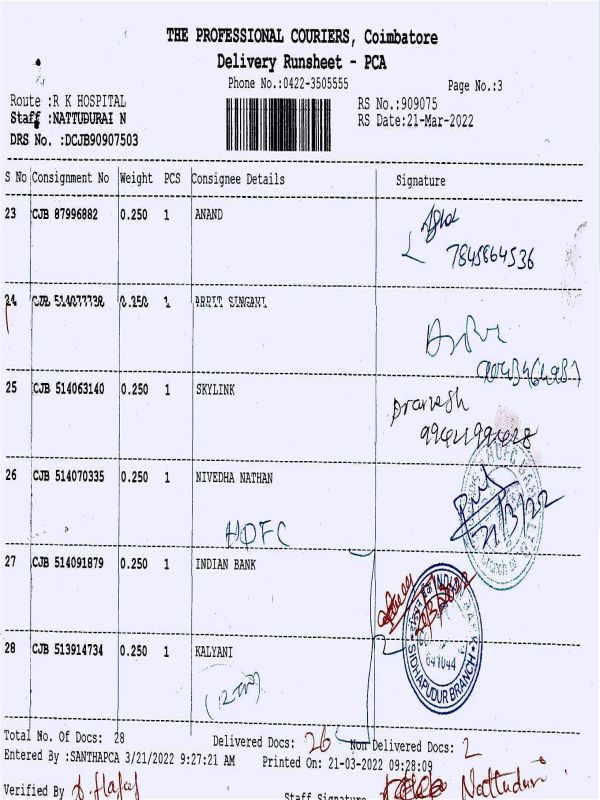 THE PROFESSIONAL COURIERS, Coimbatore
Delivery Runsheet - PCA
Phone No.:0422-3505555
Page No.:3
Route :R K HOSPITAL
RS No.:909075
Staff :NATTUDURAI N
RS Date:21-Mar-2022
DRS No. :DCJB90907503
S No Consignment No Weight PCS Consignee Details Signature
23 CJB 87996882 0.250 1 ANAND
7845864536
24 CJB 514077738 0.250 1 ARPIT SINGANI
25 CJB 514063140 0.250 1 SKYLINK
pranesh
26 CJB 514070335 0.250 1 NIVEDHA NATHAN
HDFC
21/3/22
27 CJB 514091879 0.250 1 INDIAN BANK
INDIAN
641044
SIDHAPUDUR BRANCH
28 CJB 513914734 0.250 1 KALYANI
Total No. Of Docs: 28 Delivered Docs: 26 Non Delivered Docs: 2
Entered By :SANTHAPCA 3/21/2022 9:27:21 AM Printed On: 21-03-2022 09:28:09
Verified By
Staff Signature Nattudurai